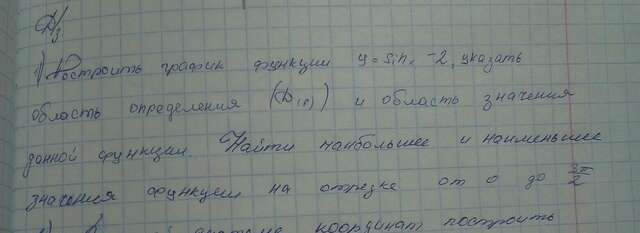 Д/з
1) Построить график функции y = sin x -2, указать
область определения (D(y)) и область значения
данной функции. Найти наибольшее и наименьшее
значения функции на отрезке от 0 до 3π/2
координат построить